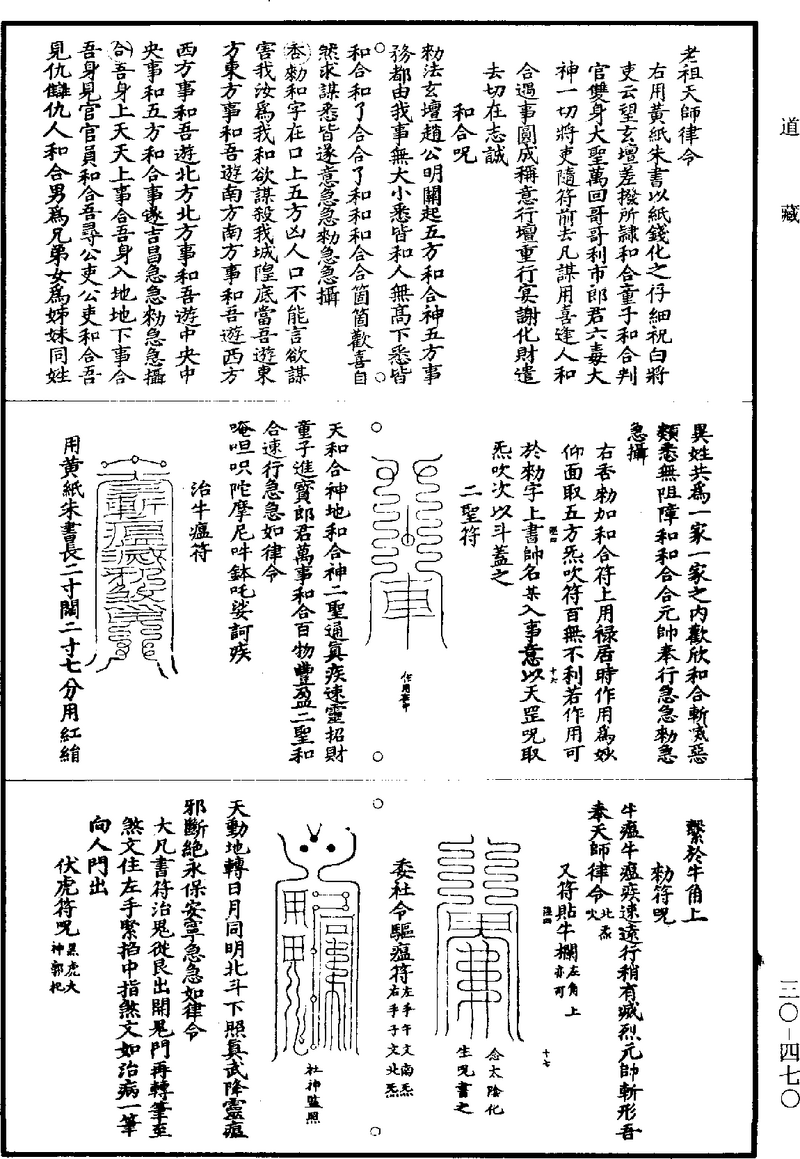 道藏
老祖天師律令
右用黃紙朱書以紙錢化之仔細祝白將
吏云望玄壇差撥所隸和合童子和合判
官雙身大聖萬回哥哥利市郎君六毒大
神一切將吏隨符前去凡謀用喜逢人和
合遇事圓成稱意行壇重行冥謝化財遣
去切在志誠
和合呪
勑法玄壇趙公明開起五方和合神五方事
務都由我事無大小悉皆和人無高下悉皆
和合和了合合了和和和合合箇箇歡喜自
然求謀悉皆遂意急急勑急急攝
香勑和字在口上五方凶人口不能言欲謀
害我汝爲我和欲謀殺我城隍底當吾遊東
方東方事和吾遊南方南方事和吾遊西方
西方事和吾遊北方北方事和吾遊中央中
央事和五方和合事遂吉昌急急勑急急攝
合吾身上天天上事合吾身入地地下事合
吾身見官官員和合吾尋公吏公吏和合吾
見仇讎仇人和合男爲兄弟女爲姊妹同姓
異姓共爲一家一家之內歡欣和合斬滅惡
類悉無阻障和和合合元帥奉行急急勑急
急攝
右香勑加和合符上用祿居時作用爲妙
仰面取五方炁吹符百無不利若作用可
於勑字上書帥名某入事意以天罡呪取
炁吹次以斗蓋之
二聖符
天和合神地和合神二聖通眞疾速靈招財
童子進寶郎君萬事和合百物豐盈二聖和
合速行急急如律令
唵呾呮陀摩尼吽鉢吒娑訶疾
治牛瘟符
用黃紙朱書長二寸闊二寸七分用紅絹
繫於牛角上
勑符呪
牛瘟牛瘟疾速遠行稍有威烈元帥斬形吾
奉天師律令北炁火
又符貼牛欄左角上亦可
念太陰化
生呪書之
委社令驅瘟符左手午文南炁右手子文北炁
社神監照
天動地轉日月同明北斗下照眞武降靈瘟
邪斷絕永保安寧急急如律令
大凡書符治鬼從艮出開鬼門再轉筆至
煞文住左手緊掐中指煞文如治病一筆
向人門出
伏虎符呪黑虎大神郭把
三〇－四七〇